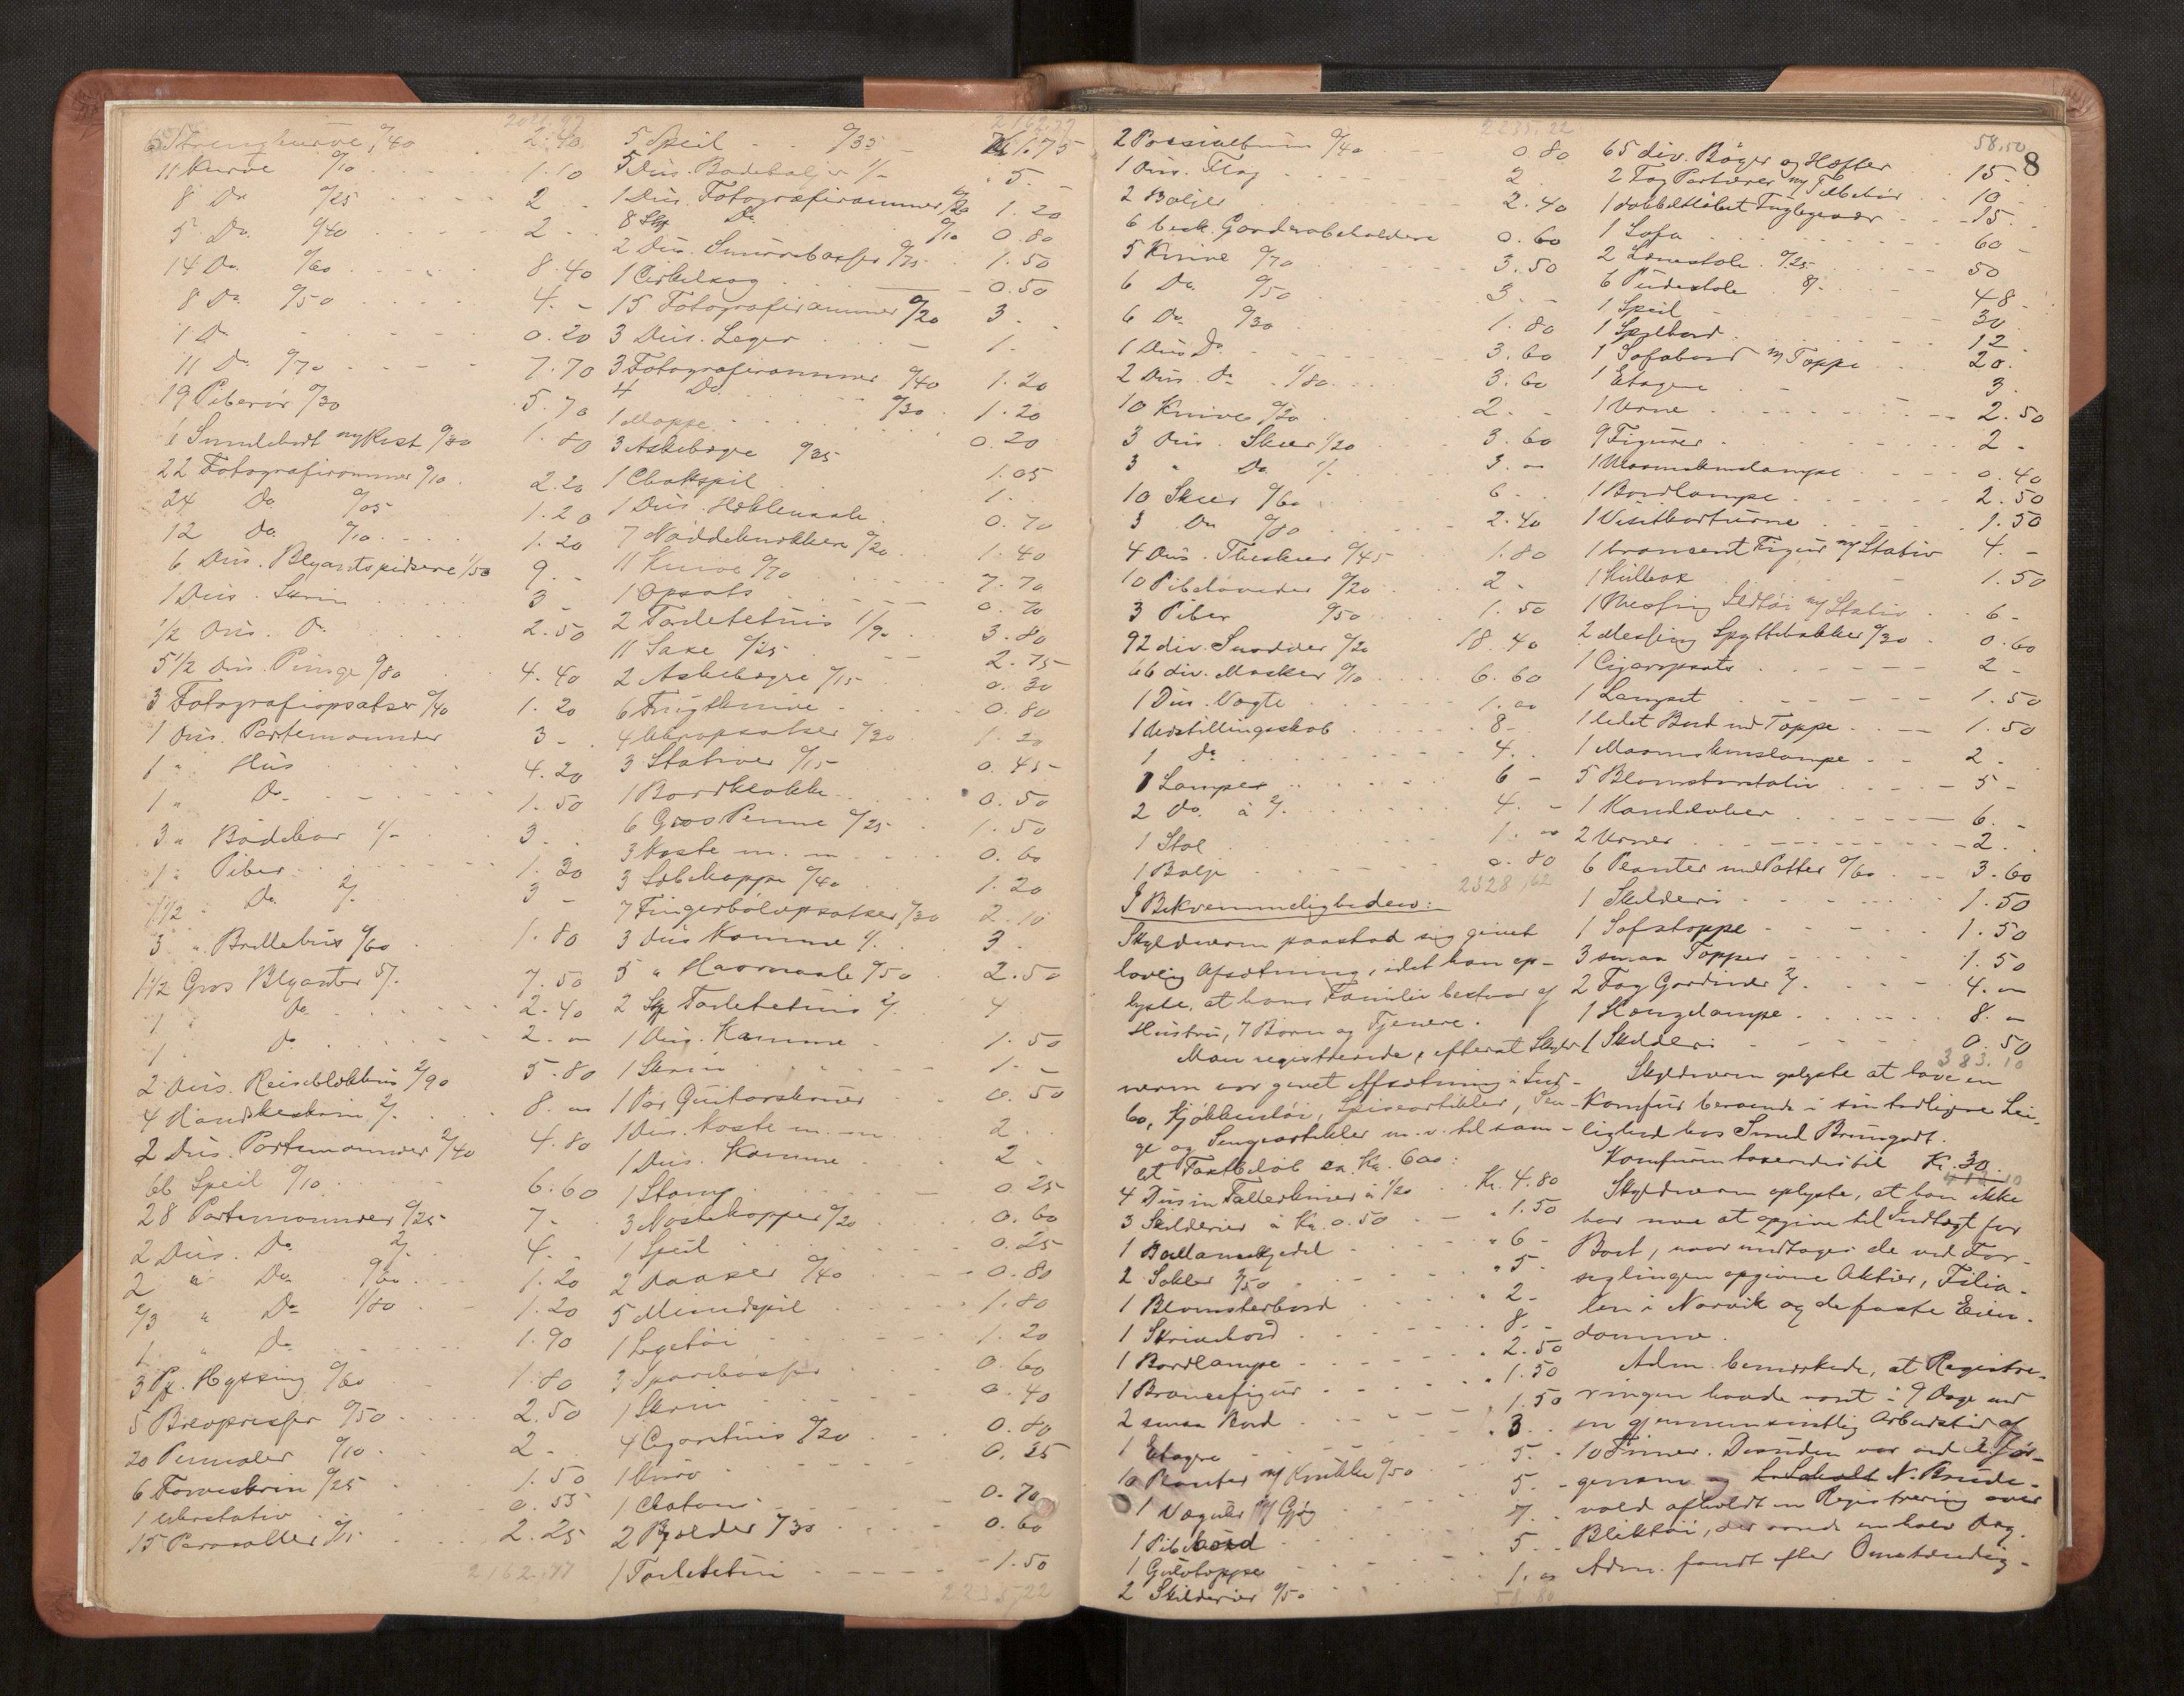 2021.97
6 Strenghurve, %40 2.40
11 Kurve %10 1.10
8 Do %25 2 -
5 Do. %40 2 -
14 Do. %60 8.40
8 Do. %50 4. -
1 Do 0.20
11 Do %70 7.70
19 Piberør %30 5.70
6 m/ Kist %30 1.80
22 Fotografirammer %10 2.20
24 Do %05 1.20
12 do. %10 1.20
6 Dus. Blyantspidsere 1/50 9. -
1 Dus. Skrin 3 -
1/2 Dus. Do 2.50
5 1/2 Dus. Punge %80 4.40
3 Fotografiopsatser %40 1.20
1 Dus. Portemonnder 3 -
1 " Hus 4.20
1 " Do. 1.50
3 " Bødekar 1/- 3.
1 " Piber 1.20
1 1/2 " Do. 2/. 3 -
3 " Brillehus %60 1.80
1 1/2 Gros Blyanter 5/. 7.50
1 " Do 2.40
1 " Do. 2. -
2 Dus. Reiseblækhus 2/90 5.80
4 Handskeskrin 2/. 8. -
2 Dus. Portemonnder 2/40 4.80
66 Speil %10 6.60
28 Portemonnder %25 7 -
2 Dus. Do. 2/. 4. -
2 " Do. %60 1.20
2/3 " Do 1/80 1.20
1 " Do 1.90
3 Pk. Hyssing %60 1.80
5 Brevpresser %50 2.50
20 Pennaler %10 2 -
6 Farveskrin %25 1.50
1 Uhrstativ 0.55
15 Parasoller %15 2.25
2162.97
2162.97
5 Speil %35 1.75
5 Dus. Badebaljer 1/- 5. -
1 Dus. Fotografirammer 1/20 1.20
8 Stk Do %10 0.80
2 Dus. %75 1.50
1 Cirkelsag 0.50
15 Fotografirammer %20 3.
3 Dus. Leger 1.
3 Fotografirammer %40 1.20
4 Do. %30 1.20
1 Mappe 0.20
3 Askebægre %35 1.05
1 Chakspil 1.
1 Dus. Heklenaale 0.70
7 Nøddeknækkere %20 1.40
11 Knive %70 7.70
1 Opsats 0.70
2 Toiletetuis 1/90 3.80
11 Saxe %25 2.75
2 Askebægre %15 0.30
6 Frugtknive 0.80
4 Uhropsatser %30 1.20
3 Stativer %15 0.45
1 Bordklokke 0.50
6 Gros Penne %25 1.50
3 Koste m. m 0.60
3 Sæbekopper %40 1.20
7 Fingerbølopsatser %30 2.10
3 dus Kamme 1/. 3 -
5 " Haarnaale %50 2.50
2 Stk Toiletetuis 2/. 4
1 Dus. Kamme 1.50
1 Skrin 1. -
1 Par Guitarskruer 0.50
1 Dus. Koste m. m 2 -
1 Dus. Kamme 2 -
1 Stamp 0.25
3 Kopper %20 0.60
1 Speil 0.25
2 Daaser %40 0.80
5 Mundspil 1.80
1 Legetøi 1.20
2 Sparebøsser 0.60
1 Skrin 0.40
4 Cigaretuis %20 0.80
1 0.35
1 Chatoul 0.70
2 Bjælder %30 0.60
1 Toiletetui 1.50
2235.22
2235.22
2 Possialbum %40 0.80
1 Dus. Flag 2
2 Baljer 2.40
6 besk. Garderobeholdere 0.60
5 Knive %70 3.50
6 Do. %50 3. -
6 Do %30 1.80
1 Dus Do. 3.60
2 Dus. do 1/80 3.60
10 Knive %20 2 -
3 Dus. Skeer 1/20 3.60
3 " Do 1/. 3. -
10 Skeer %60 6 -
3 Do %80 2.40
4 Dus. Theskeer %45 1.80
10 Pibehoveder %20 2 -
3 Piber %50 1.50
92 div. Snadder %20 18.40
66 div. Masker %10 6.60
1 Dus. Vogte 1. -
1 Udstillingsskab 8 -
1 do 4. -
1 Lamper 6 -
2 Do. à 2/. 4. -
1 Stol 1. -
1 Balje 0.80
2328,62
I Bekvemmeligheden:
Skyldneren paastod sig givet
lovlig Afsætning, idet han op-
lyste, at hans Familie bestaar af
Hustru, 7 Børn og Tjenere.
Man registrerede, efterat Skyld-
neren var givet Afsætning i Ind-
bo, Kjøkkentøi, Spiseartikler, Sen-
ge og Sengeartikler m. v. til sam-
let Taxtbeløb ca. Kr. 600:
4 Dusin Tallerkener à 1/20 Kr. 4.80
3 Skilderier à Kr. 0.50 " 1.50
1 Ballansekjedel " 6 -
2 Sokler 2/50 " 5 -
1 Blomsterbord " 2 -
1 Skrivebord 8. -
1 Bordlampe " 2.50
1 Broncefigur " 1.50
2 smaa Bord " 1.50
1 Etagere " 3.
10 Planter m/ Krukker %50 5. -
1 Vægur m/ Gjøg 5. -
1 Pibebord 7. -
1 Gulvtoppe 5. -
2 Skilderier %50 1. -
58.80
8
58,80
65 div. Bøger og Hæfter 15 -
2 Fag Portierer m/ Tilbehør 10 -
1 dobbeltløbet Fuglegevær 15.
1 Sofa 60 -
2 Lænestole %25 50
6 Pudestole 8/. 48 -
1 Speil 30
1 Spilbord 12.
1 Sofabord m/ Toppe 20.
1 Etagere 3.
1 Urne 2.50
9 Figurer 2 -
1 Maaneskinslampe 0.40
1 Bordlampe 2.50
1 Visitkorturne 1.50
1 bronsert Figur m/ Stativ 4. -
1 Kulbox 1.50
1 Messing Ildtøi m/ Stativ 6 -
2 Messing Spyttebakker %30 0.60
1 Cigaropsats 2 -
1 Lampet 1.50
1 lidet Bord med Toppe 1.50
1 Maaneskinslampe 2 -
5 Blomsterstativ 5 -
1 Kandelaber 6. -
2 Urner 2.
6 Planter med Potter %60 3.60
1 Skilderi 1.50
1 Sofatoppe 1.50
3 smaa Topper 1.50
2 Fag Gardiner 2/. 4. -
1 Hængelampe 8. -
1 Skilderi 0.50
383.10
Skyldneren oplyste at have en
Komfur beroende i sin tidligere Lei-
lighed hos Smed Brungodt.
Komfuren taxeredes til Kr. 30.
Skyldneren oplyste, at han ikke
har noe at opgive til Indtægt for
Boet, naar undtages de ved For-
seglingen opgivne Aktier, Filia-
len i Narvik og de faste Eien-
domme.
Adm. bemærkede, at Registre-
ringen havde varet i 9 Dage med
en gjennemsnitlig Arbeidstid af
10 Timer. Desuden var ved E. Jør-
gensen og N. Brude-
vold afholdt en Registrering over
Bliktøi, der varede en halv Dag.
Adm. fandt efter Omstændig-